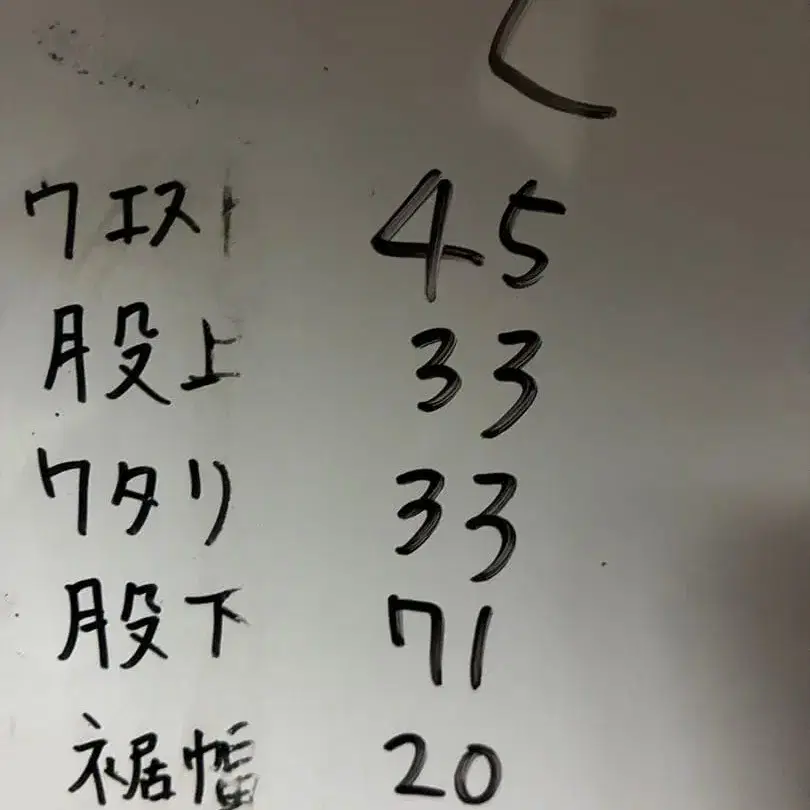 ウエスト 45
股上 33
ワタリ 33
股下 71
裾幅 20